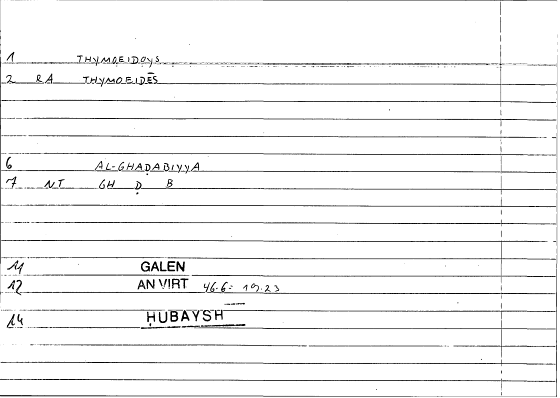 1 THYMOEIDOYS
2 RA THYMOEIDĒS
6 AL-GHAḌABIYYA
7 NT GH Ḍ B
11 GALEN
12 AN VIRT 46.6: 19.23
14 ḤUBAYSH